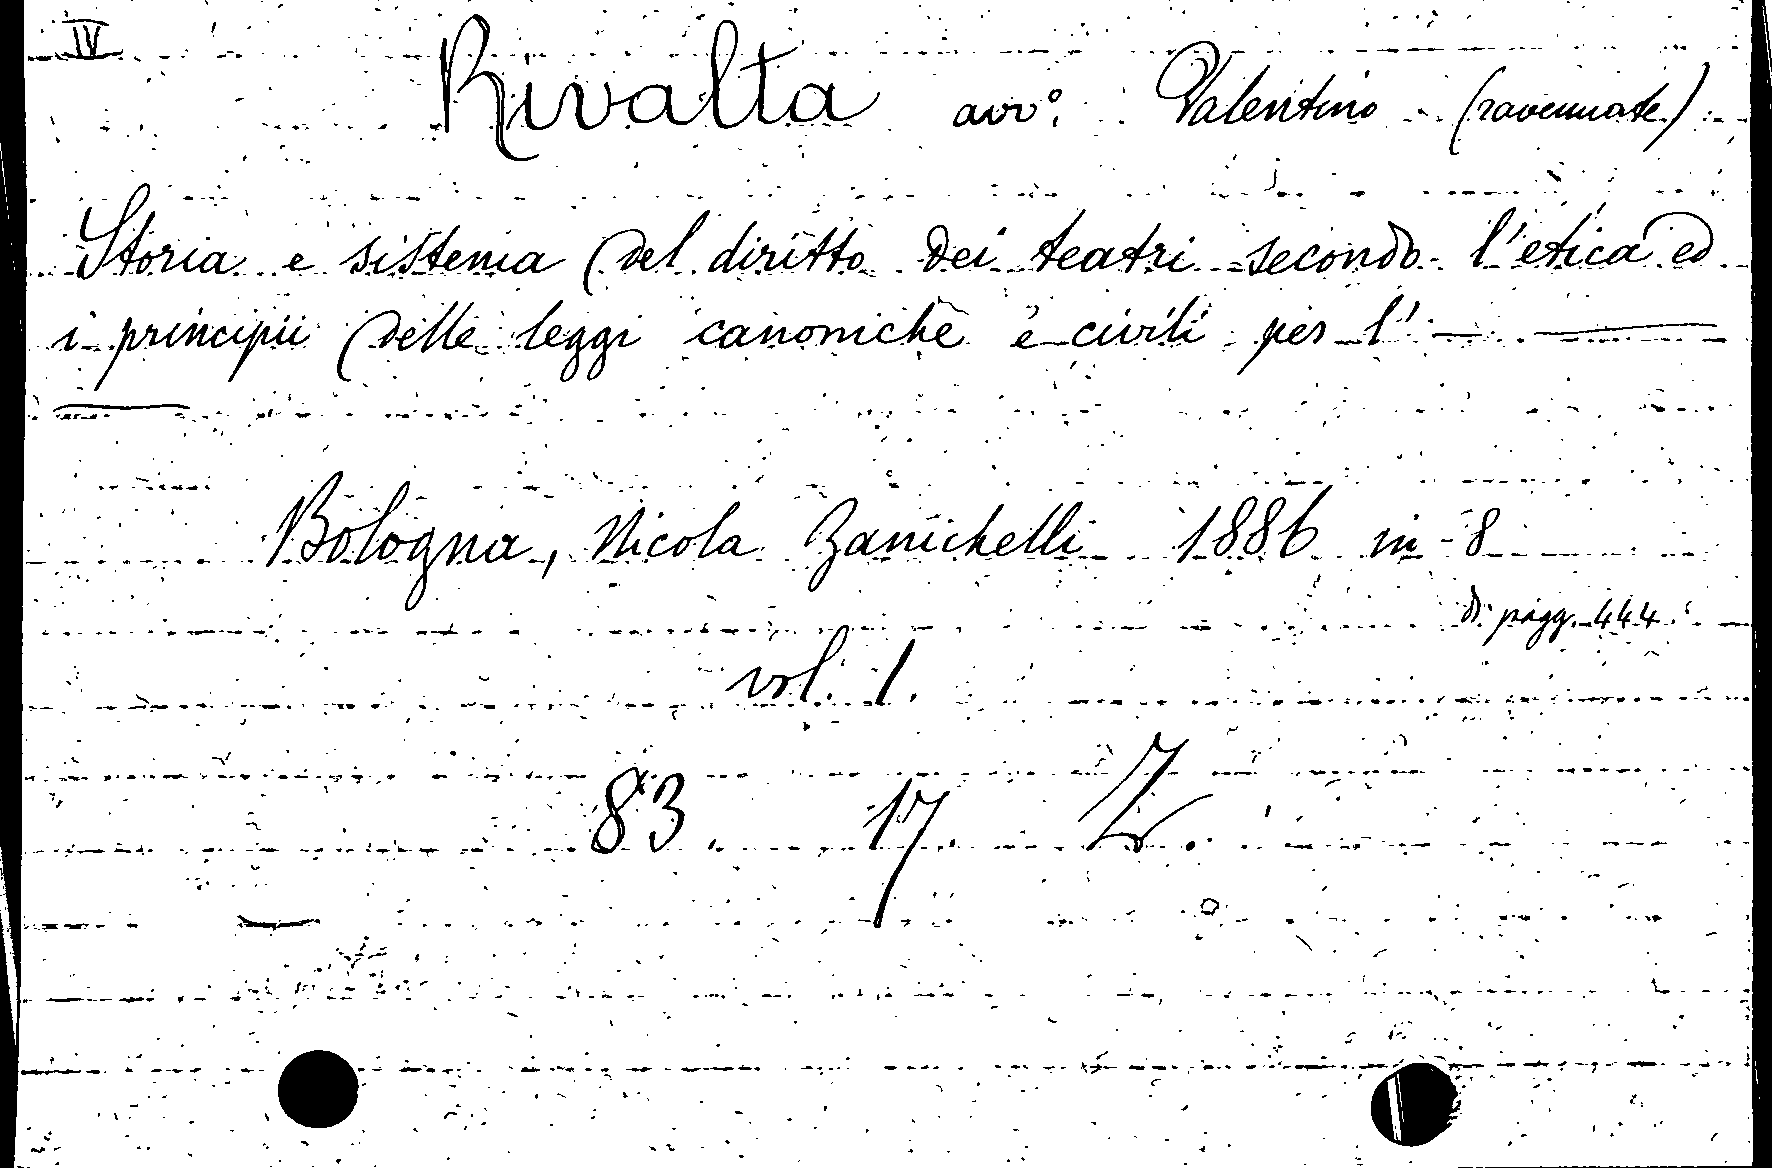 IV
Rivalta avv°. Valentino (ravennate)
Storia e sistema del diritto dei teatri secondo l'etica ed
i principii delle leggi canoniche e civili per l' — ———
———
Bologna, Nicola Zanichelli 1886 in-8
di pagg. 444
vol. 1.
83. 17.